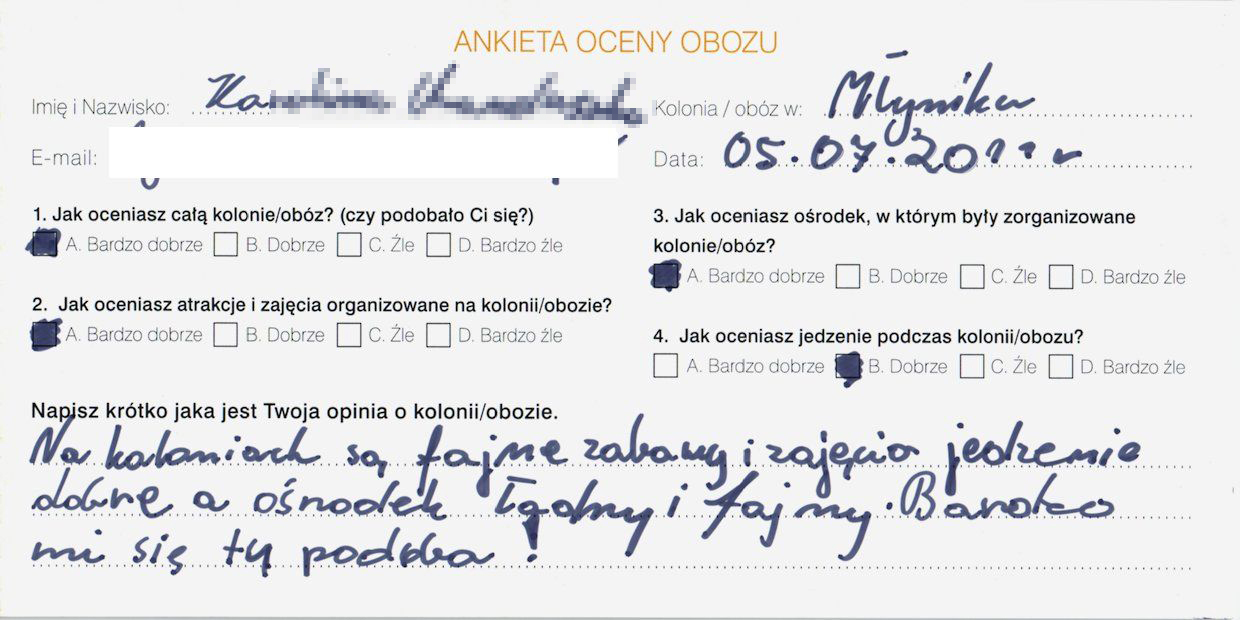 ANKIETA OCENY OBOZU
Imię i Nazwisko:
Kolonia / obóz w: Młyniku
E-mail:
Data: 05.07.2011 r
1. Jak oceniasz całą kolonie/obóz? (czy podobało Ci się?)
A. Bardzo dobrze B. Dobrze C. Źle D. Bardzo źle
2. Jak oceniasz atrakcje i zajęcia organizowane na kolonii/obozie?
A. Bardzo dobrze B. Dobrze C. Źle D. Bardzo źle
3. Jak oceniasz ośrodek, w którym były zorganizowane
kolonie/obóz?
A. Bardzo dobrze B. Dobrze C. Źle D. Bardzo źle
4. Jak oceniasz jedzenie podczas kolonii/obozu?
A. Bardzo dobrze B. Dobrze C. Źle D. Bardzo źle
Napisz krótko jaka jest Twoja opinia o kolonii/obozie.
Na koloniach są fajne zabawy i zajęcia jedzenie
dobre a ośrodek łądny i fajny. Bardzo
mi się tu podoba!